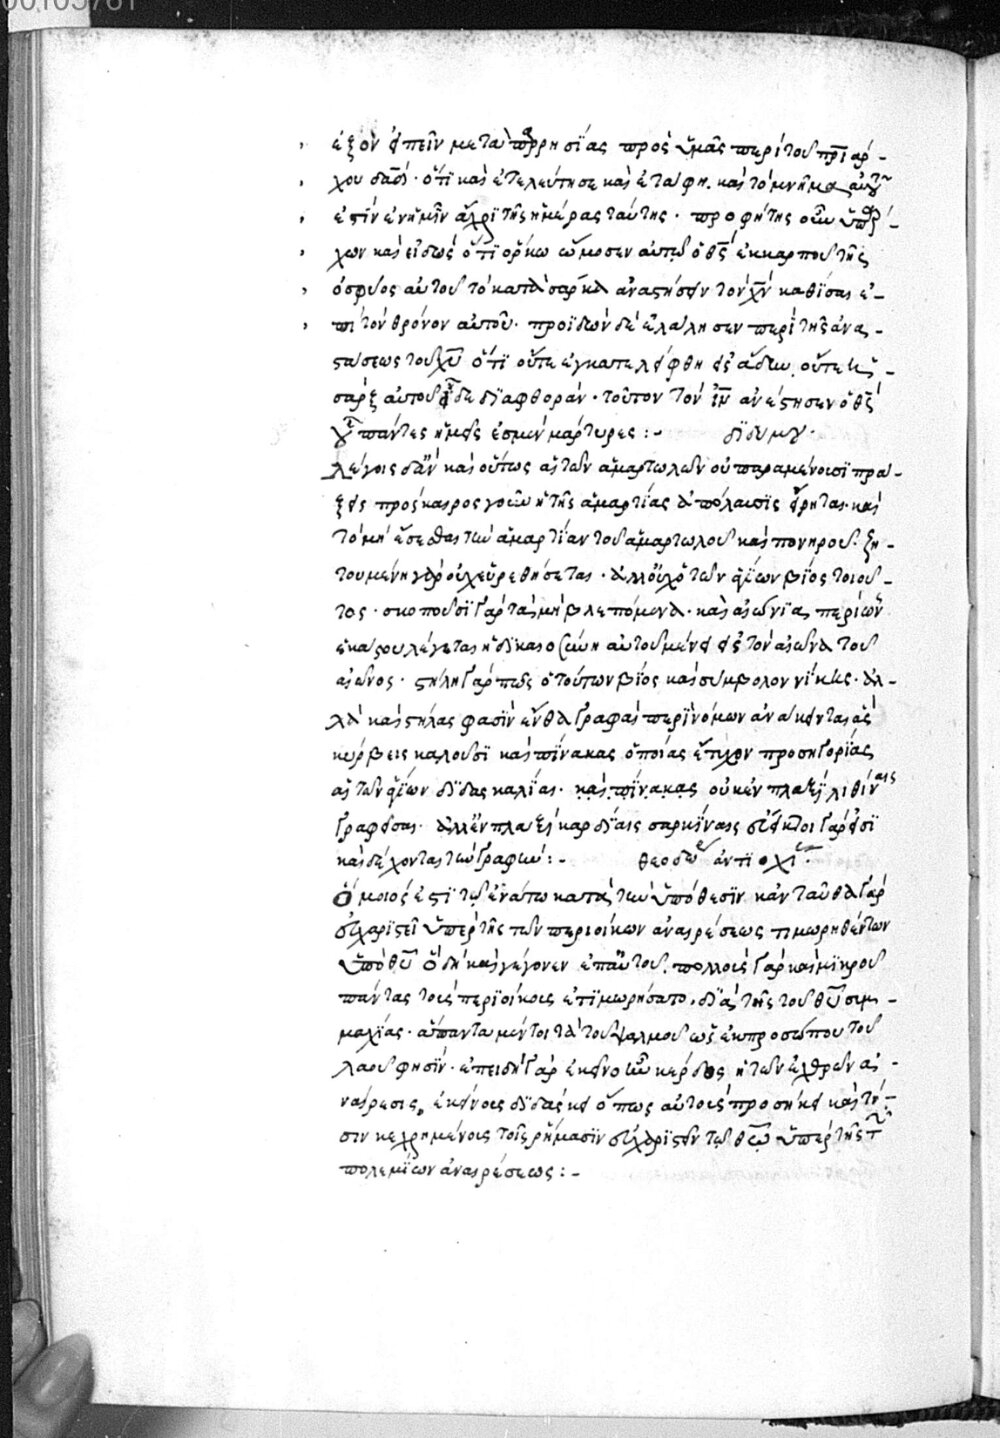 00105761
ἐξὸν εἰπεῖν μετὰ παρρησίας πρὸς ὑμᾶς περὶ τοῦ πρῖαρ-
χου δαδ· ὅτι καὶ ἐτελεύτησε καὶ ἐτάφη. καὶ τὸ μνῆμα αὐτοῦ
ἐστὶν ἐν ἡμῖν ἄχρι τῆς ἡμέρας ταύτης· προφήτης οὖν ὑπάρ-
χων καὶ εἰδὼς ὅτι ὅρκω ὤμοσεν αὐτῶ ὁ θς ἐκ καρποῦ τῆς
ὀσφύος αὐτοῦ τὸ κατὰ σάρκα ἀναστήσειν τὸν χν καθίσαι ἐ-
πὶ τὸν θρόνον αὐτοῦ· προϊδὼν δὲ ἐλάλησεν περὶ τῆς ἀνα-
στάσεως τοῦ χυ ὅτι οὔτε ἐγκατελείφθη εἰς ἅδου, οὔτε ἡ
σὰρξ αὐτοῦ εἶδε διαφθοράν· τοῦτον τὸν ιν ἀνέστησεν ὁ θς
οὗ πάντες ἡμεῖς ἐσμὲν μάρτυρες :- διδύμου·
λέγοις δἂν καὶ οὕτως αἱ τῶν ἁμαρτωλῶν οὐ παραμένουσι πρά-
ξεις πρόσκαιρος γοῦν ἡ τῆς ἁμαρτίας ἀπόλαυσις εἴρηται· καὶ
τὸ μὴ ἔσεσθαι τὴν ἁμαρτίαν τοῦ ἁμαρτωλοῦ καὶ πονηροῦ. ζη-
τουμένη γὰρ οὐχ εὑρεθήσεται· ἀλλ οὐχ ὁ τῶν ἁγίων βίος τοιοῦ-
τος· σκοποῦσι γὰρ τὰ μὴ βλεπόμενα· καὶ αἰώνια, περὶ ὧν
ἑκάστου λέγεται ἡ δικαιοσύνη αὐτοῦ μένει εἰς τὸν αἰῶνα τοῦ
αἰῶνος· στήλη γάρ πως ὁ τούτων βίος καὶ σύμβολον νίκης· ἀλ-
λὰ καὶ στήλας φασὶν ἔνθα γραφαὶ περὶ νόμων ἀνάκεινται ἃς
κύρβεις καλοῦσι καὶ πίνακας ὁποίας ἔτυχον προσηγορίας
αἱ τῶν ἁγίων διδασκαλίαι· καὶ πίνακας οὐκ ἐν πλαξὶ λιθίναις
γραφεῖσαι· ἀλλ ἐν πλαξὶ καρδίαις σαρκίναις εἴεικτοι γάρ εἰσι
καὶ δέχονται τὴν γραφήν :- θεοδω ἀντιοχ·
Ὅμοιός ἐστι τῶ ἐνάτω κατὰ τὴν ὑπόθεσιν κἀνταῦθα γὰρ
εὐχαριστεῖ ὑπὲρ τῆς τῶν περιοίκων ἀναιρέσεως τιμωρηθέντων
ὑπὸ θυ ὃ δὴ καὶ γέγονεν ἐπ αὐτοῦ. πολλοὺς γὰρ καὶ μικροῦ
πάντας τοὺς περιοίκους ἐτιμωρήσατο, διὰ τῆς τοῦ θυ συμ-
μαχίας· ἅπαντα μέντοι τὰ τοῦ ψαλμοῦ ὡς ἐκ προσώπου τοῦ
λαοῦ φησίν· ἐπειδὴ γὰρ ἐκείνο ἦν κέρδος ἡ τῶν ἐχθρῶν ἀ-
ναίρεσις, ἐκείνους διδάσκει ὅπως αὐτοὺς προσήκει καὶ τί-
σιν κεχρημένους τοῖς ῥήμασιν εὐχαριστεῖν τῶ θω ὑπὲρ τῆς τ
πολεμίων ἀναιρέσεως :-